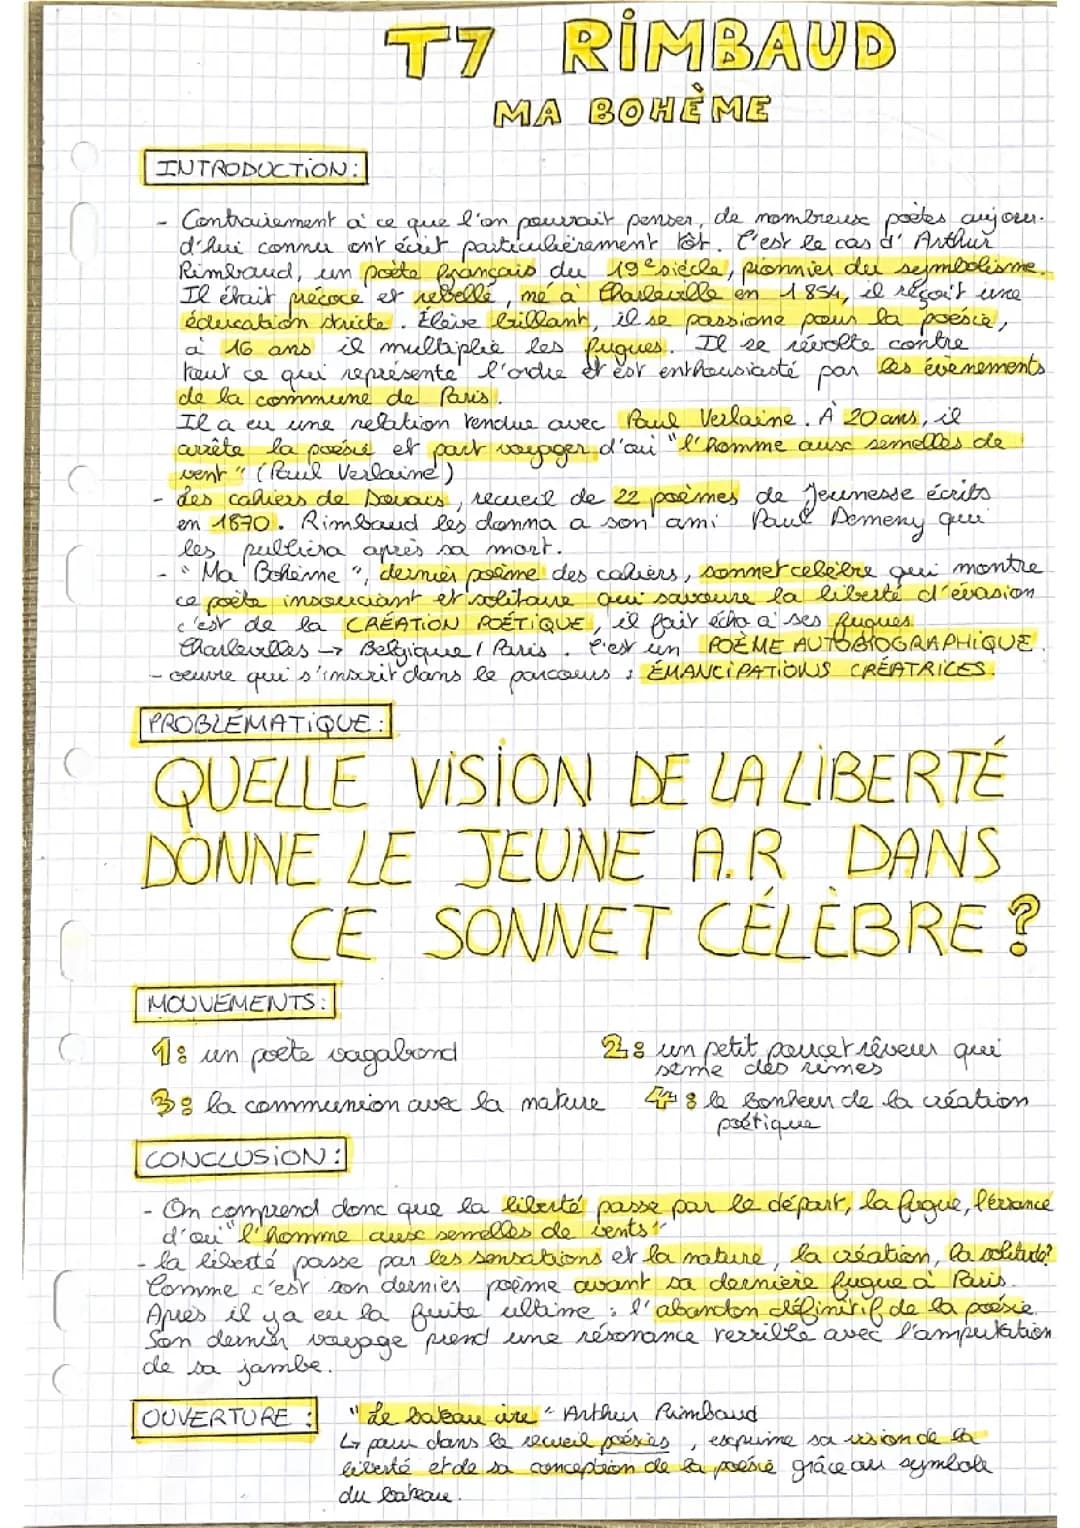 T7 RIMBAUD
MA BOHÈME
INTRODUCTION :
- Contrairement à ce que l'on pourrait penser, de nombreux poètes aujour-
d'hui connu ont écrit particulièrement tôt. C'est le cas d'Arthur
Rimbaud, un poète français du 19e siècle, pionnier du symbolisme.
Il était précoce et rebelle, né à Charleville en 1854, il reçoit une
éducation stricte. Élève brillant, il se passione pour la poésie,
à 16 ans il multiplie les fugues. Il se révolte contre
tout ce qui représente l'ordre et est enthousiasté par les évènements
de la commune de Paris.
Il a eu une relation tendue avec Paul Verlaine. À 20 ans, il
arrête la poésie et part voyager d'où "l'homme aux semelles de
vent" (Paul Verlaine)
- Les cahiers de Douais, recueil de 22 poèmes de Jeunesse écrits
en 1870. Rimbaud les donna a son ami Paul Demeny qui
les publiera après sa mort.
- "Ma Bohème", dernier poème des cahiers, sonnet célèbre qui montre
ce poète insouciant et solitaire qui savoure la liberté d'évasion
c'est de la CRÉATION POÉTIQUE, il fait écho à ses fugues.
Charlevilles → Belgique / Paris. C'est un POÈME AUTOBIOGRAPHIQUE.
- oeuvre qui s'inscrit dans le parcours : ÉMANCIPATIONS CRÉATRICES.
PROBLÉMATIQUE :
QUELLE VISION DE LA LIBERTÉ
DONNE LE JEUNE A.R DANS
CE SONNET CÉLÈBRE ?
MOUVEMENTS :
1 : un poète vagabond
2 : un petit poucet rêveur qui
sème des rimes
3 : la communion avec la nature
4 : le bonheur de la création
poétique
CONCLUSION :
- On comprend donc que la liberté passe par le départ, la fugue, l'errance
d'où "l'homme aux semelles de vents"
- la liberté passe par les sensations et la nature, la création, la solitude.
Comme c'est son dernier poème avant sa dernière fugue à Paris.
Après il y a eu la fuite ultime : l'abandon définitif de la poésie.
Son dernier voyage prend une résonance terrible avec l'amputation
de sa jambe.
OUVERTURE :
"Le bateau ivre" Arthur Rimbaud
↳ paru dans le recueil poésies, exprime sa vision de la
liberté et de sa conception de la poésie grâce au symbole
du bateau.